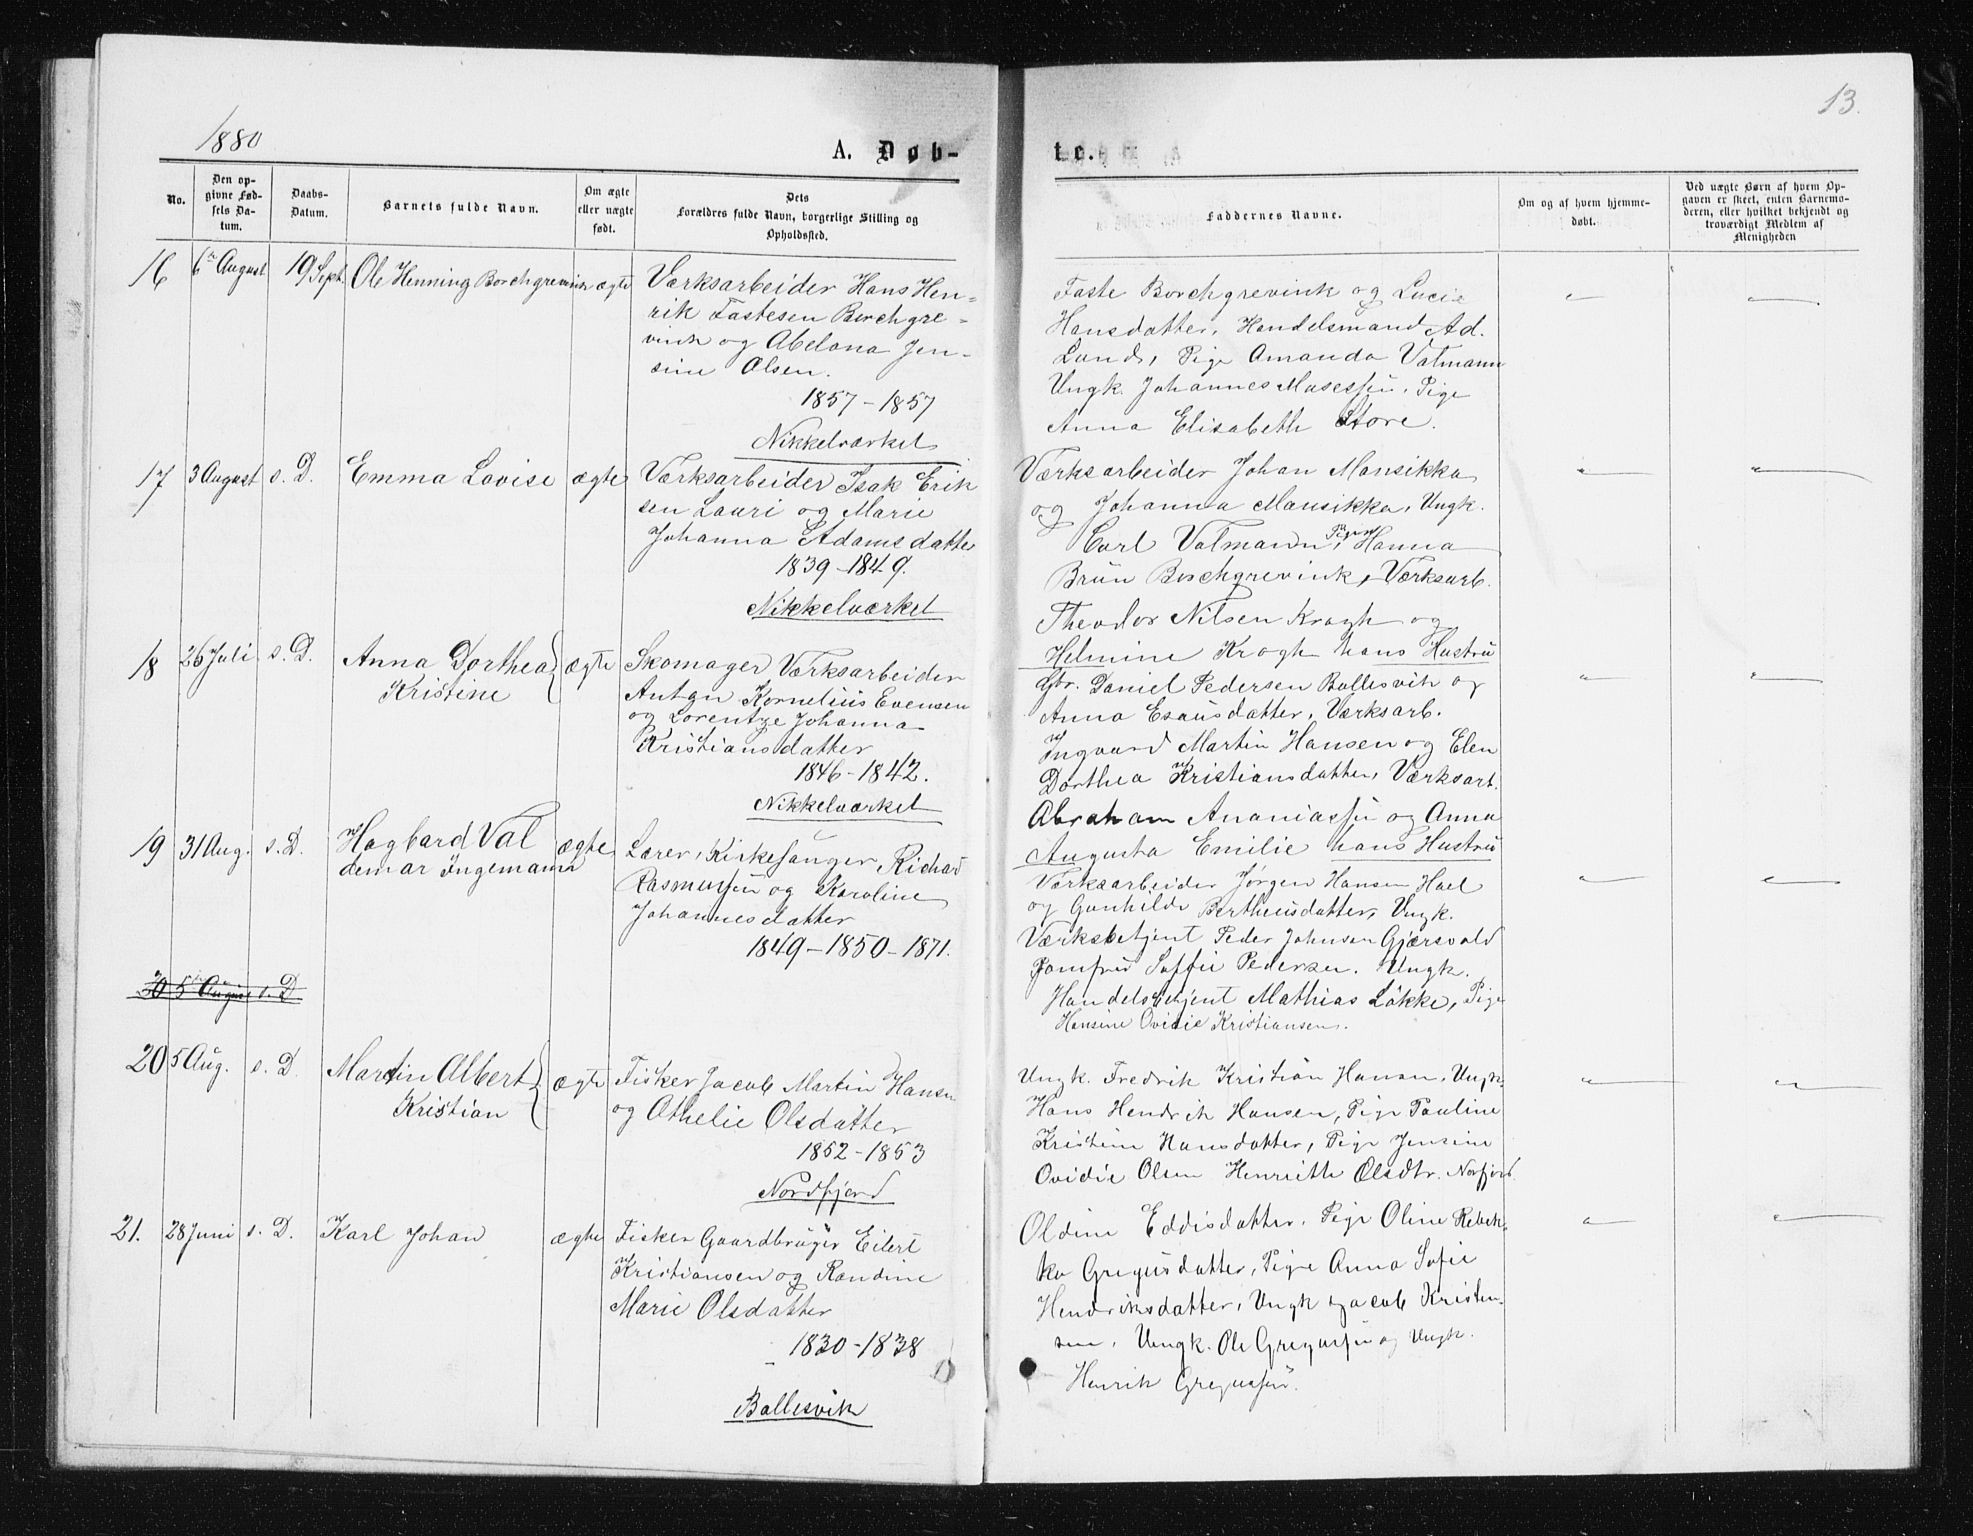 1880
A. Døb-
No.
Den op-
givne Fød-
sels Da-
tum.
Daabs-
Datum.
Barnets fulde Navn.
Om ægte
eller uægte
født.
Dets
Forældres fulde Navn, borgerlige Stilling og
Opholdssted.
16 6te August 19 Sept. Ole Henning Borchgrevink ægte Værksarbeider Hans Hen-
rik Fastesen Borchgre-
vink og Abelona Jen-
sine Olsen.
1857 - 1857
Nikkelværket
17 3 August s. D. Emma Lovise ægte Værksarbeider Isak Erik
sen Lauri og Marie
Johanna Adamsdatter
1839 - 1849.
Nikkelværket
18 26 Juli s. D. Anna Dorthea ægte Skomager Værksarbeider
Kristine Anton Kornelius Evensen
og Lorentze Johanna
Kristiansdatter
1846 - 1842.
Nikkelværket
19 31 Aug. s. D. Hagbard Val ægte Lærer, Kirkesanger, Richard
demar Ingemann Rasmussen og Karoline
Johannesdatter
1849 - 1850 - 1871.
20 5 August s. D
20 5 Aug. s. D. Martin Albert ægte Fisker Jacob Martin Hansen
Kristian og Othelie Olsdatter
1852 - 1853
Nordfjord
21. 28 Juni s. D. Karl Johan ægte Fisker Gaardbruger Eilert
Kristiansen og Randine
Marie Olsdatter
1830 - 1838
Ballesvik
13.
te.
Faddernes Navne.
Om og af hvem hjemme-
døbt.
Ved uægte Børn af hvem Op-
gaven er skeet, enten Barnemo-
deren, eller hvilket bekjendt og
troværdigt Medlem af
Menigheden
Faste Borchgrevink og Lucie
Hansdatter, Handelsmand Ad.
Lund, Pige Amanda Valmann
Ungk. Johannes Mosessen, Pige
Anna Elisabeth Store.
Værksarbeider Johan Mansikka
og Johanna Mansikka, Ungk.
Carl Valmann, Pige Hanna
Brun Borchgrevink, Værksarb.
Theodor Nilsen Krogh og
Helmine Krogh hans Hustru
Gbr. Daniel Pedersen Ballesvik og
Anna Esausdatter, Værksarb.
Ingvard Martin Hansen og Elen
Dorthea Kristiansdatter, Værksarb.
Abraham Ananiassen og Anna
Augusta Emilie hans Hustru
Værksarbeider Jørgen Hansen
og Gunhilde Bertheusdatter, Ungk.
Værksbetjent Peder Johnsen Gjærsvold
Jomfru Soffie Pedersen. Ungk.
Handelsbetjent Mathias Løkke, Pige
Hansine Ovidie Kristiansen.
Ungk. Fredrik Kristian Hansen, Ungk.
Hans Hendrik Hansen, Pige Pauline
Kristine Hansdatter, Pige Jensine
Ovidie Olsen Henriette Olsdtr. Norfjord.
Oldine Eddisdatter, Pige Oline Rebek-
ka Gregusdatter, Pige Anna Sofie
Hendriksdatter, Ungk Jacob Kristen-
sen, Ungk. Ole Gregussen og Ungk.
Henrik Gregussen.